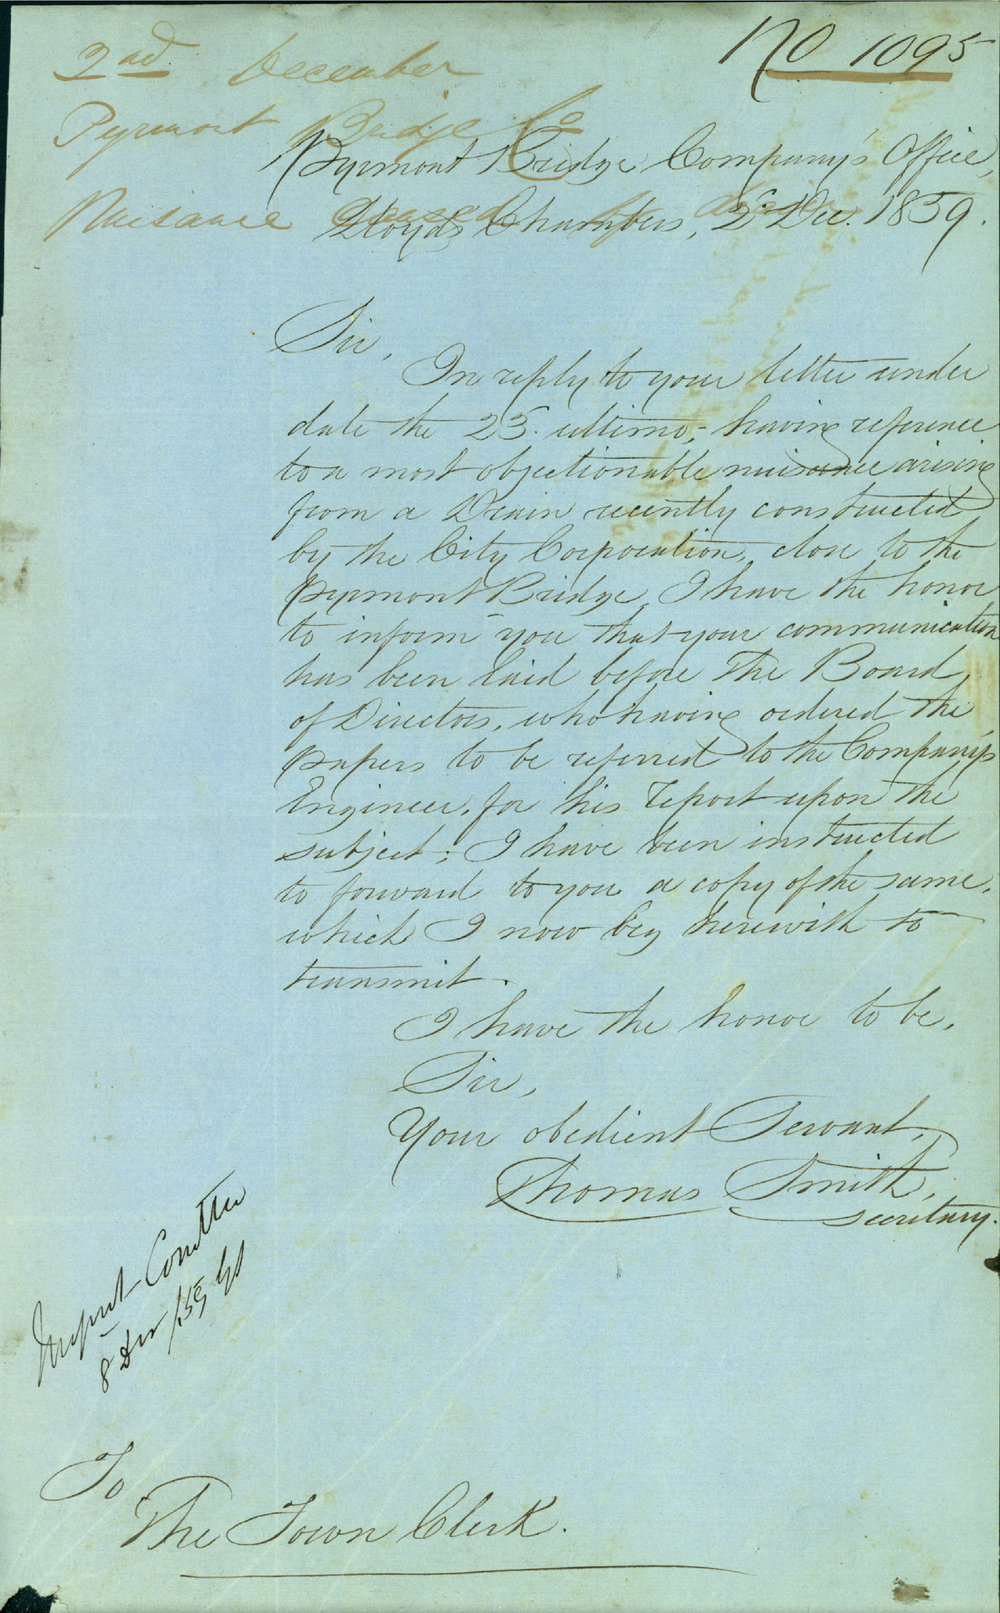 No 1095
2nd December
Pyrmont Bridge Co
Nuisance caused by drain
Pyrmont Bridge Company's Office,
Lloyds Chambers, 2 Dec. 1859.
Sir,
In reply to your letter under
date the 25. ultimo;- having reference
to a most objectionable nuisance arising
from a Drain recently constructed
by the City Corporation, close to the
Pyrmont Bridge, I have the honor
to inform you that your communication
has been laid before The Board
of Directors, who having ordered the
papers to be referred to the Company's
Engineer, for his report upon the
subject; I have been instructed
to forward to you a copy of the same,
which I now beg herewith to
transmit.
I have the honor to be,
Sir,
Your obedient Servant,
Thomas Smith,
Secretary.
8 Dec /59
To
The Town Clerk.